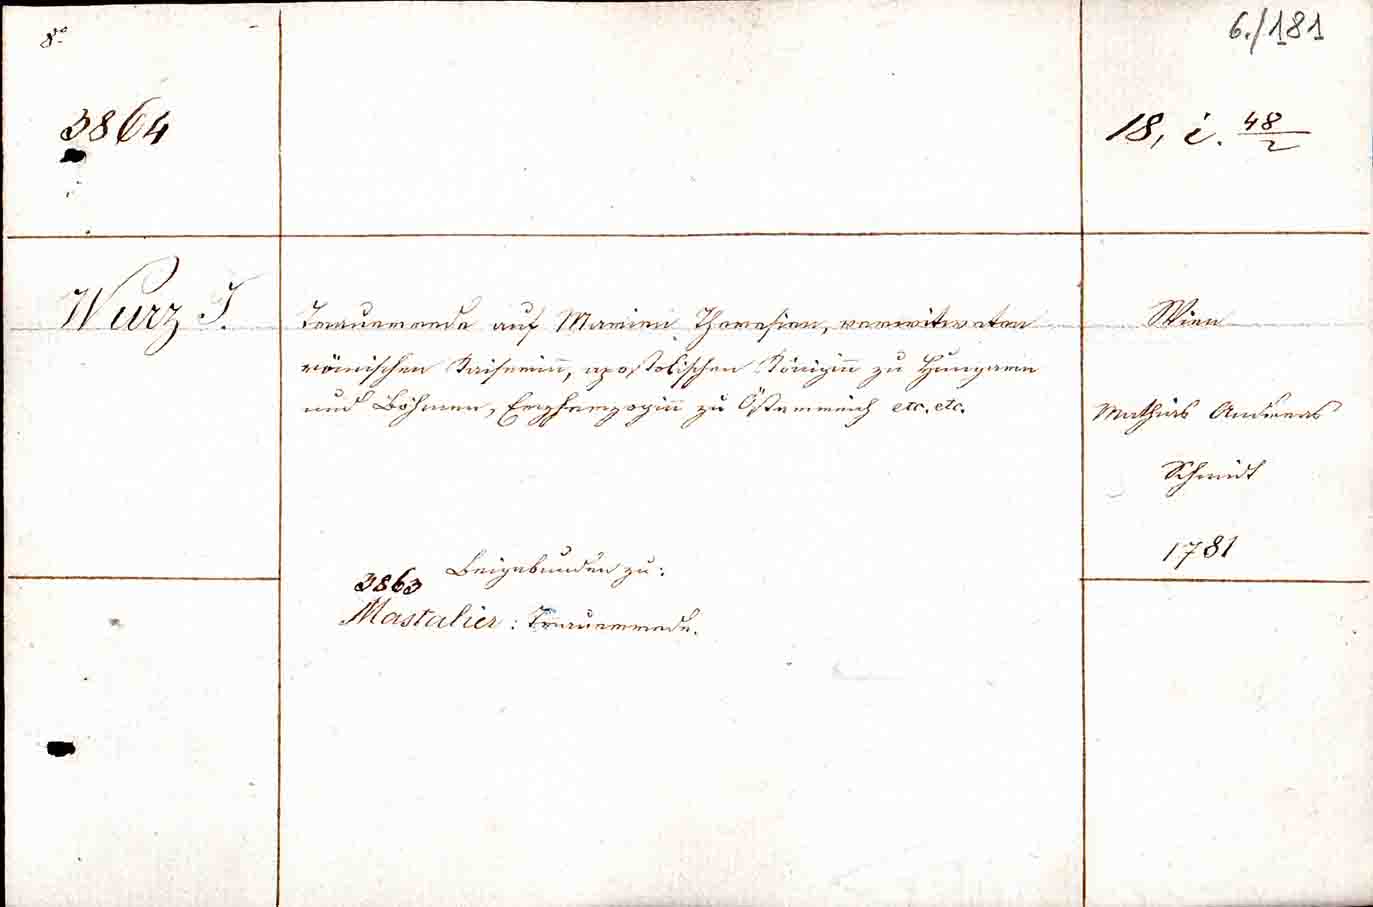 8º
6./181
3864
18, i. 48/2
Wurz I.
Trauerrede auf Marien Theresien, verwitweten
römischen Kaiserinn, apostolischen Königinn zu Hungarn
und Böhmen, Erzherzoginn zu Österreich etc. etc.
Wien
Mathias Andreas
Schmidt
1781
Beigebunden zu:
3863
Mastalier: Trauerrede.